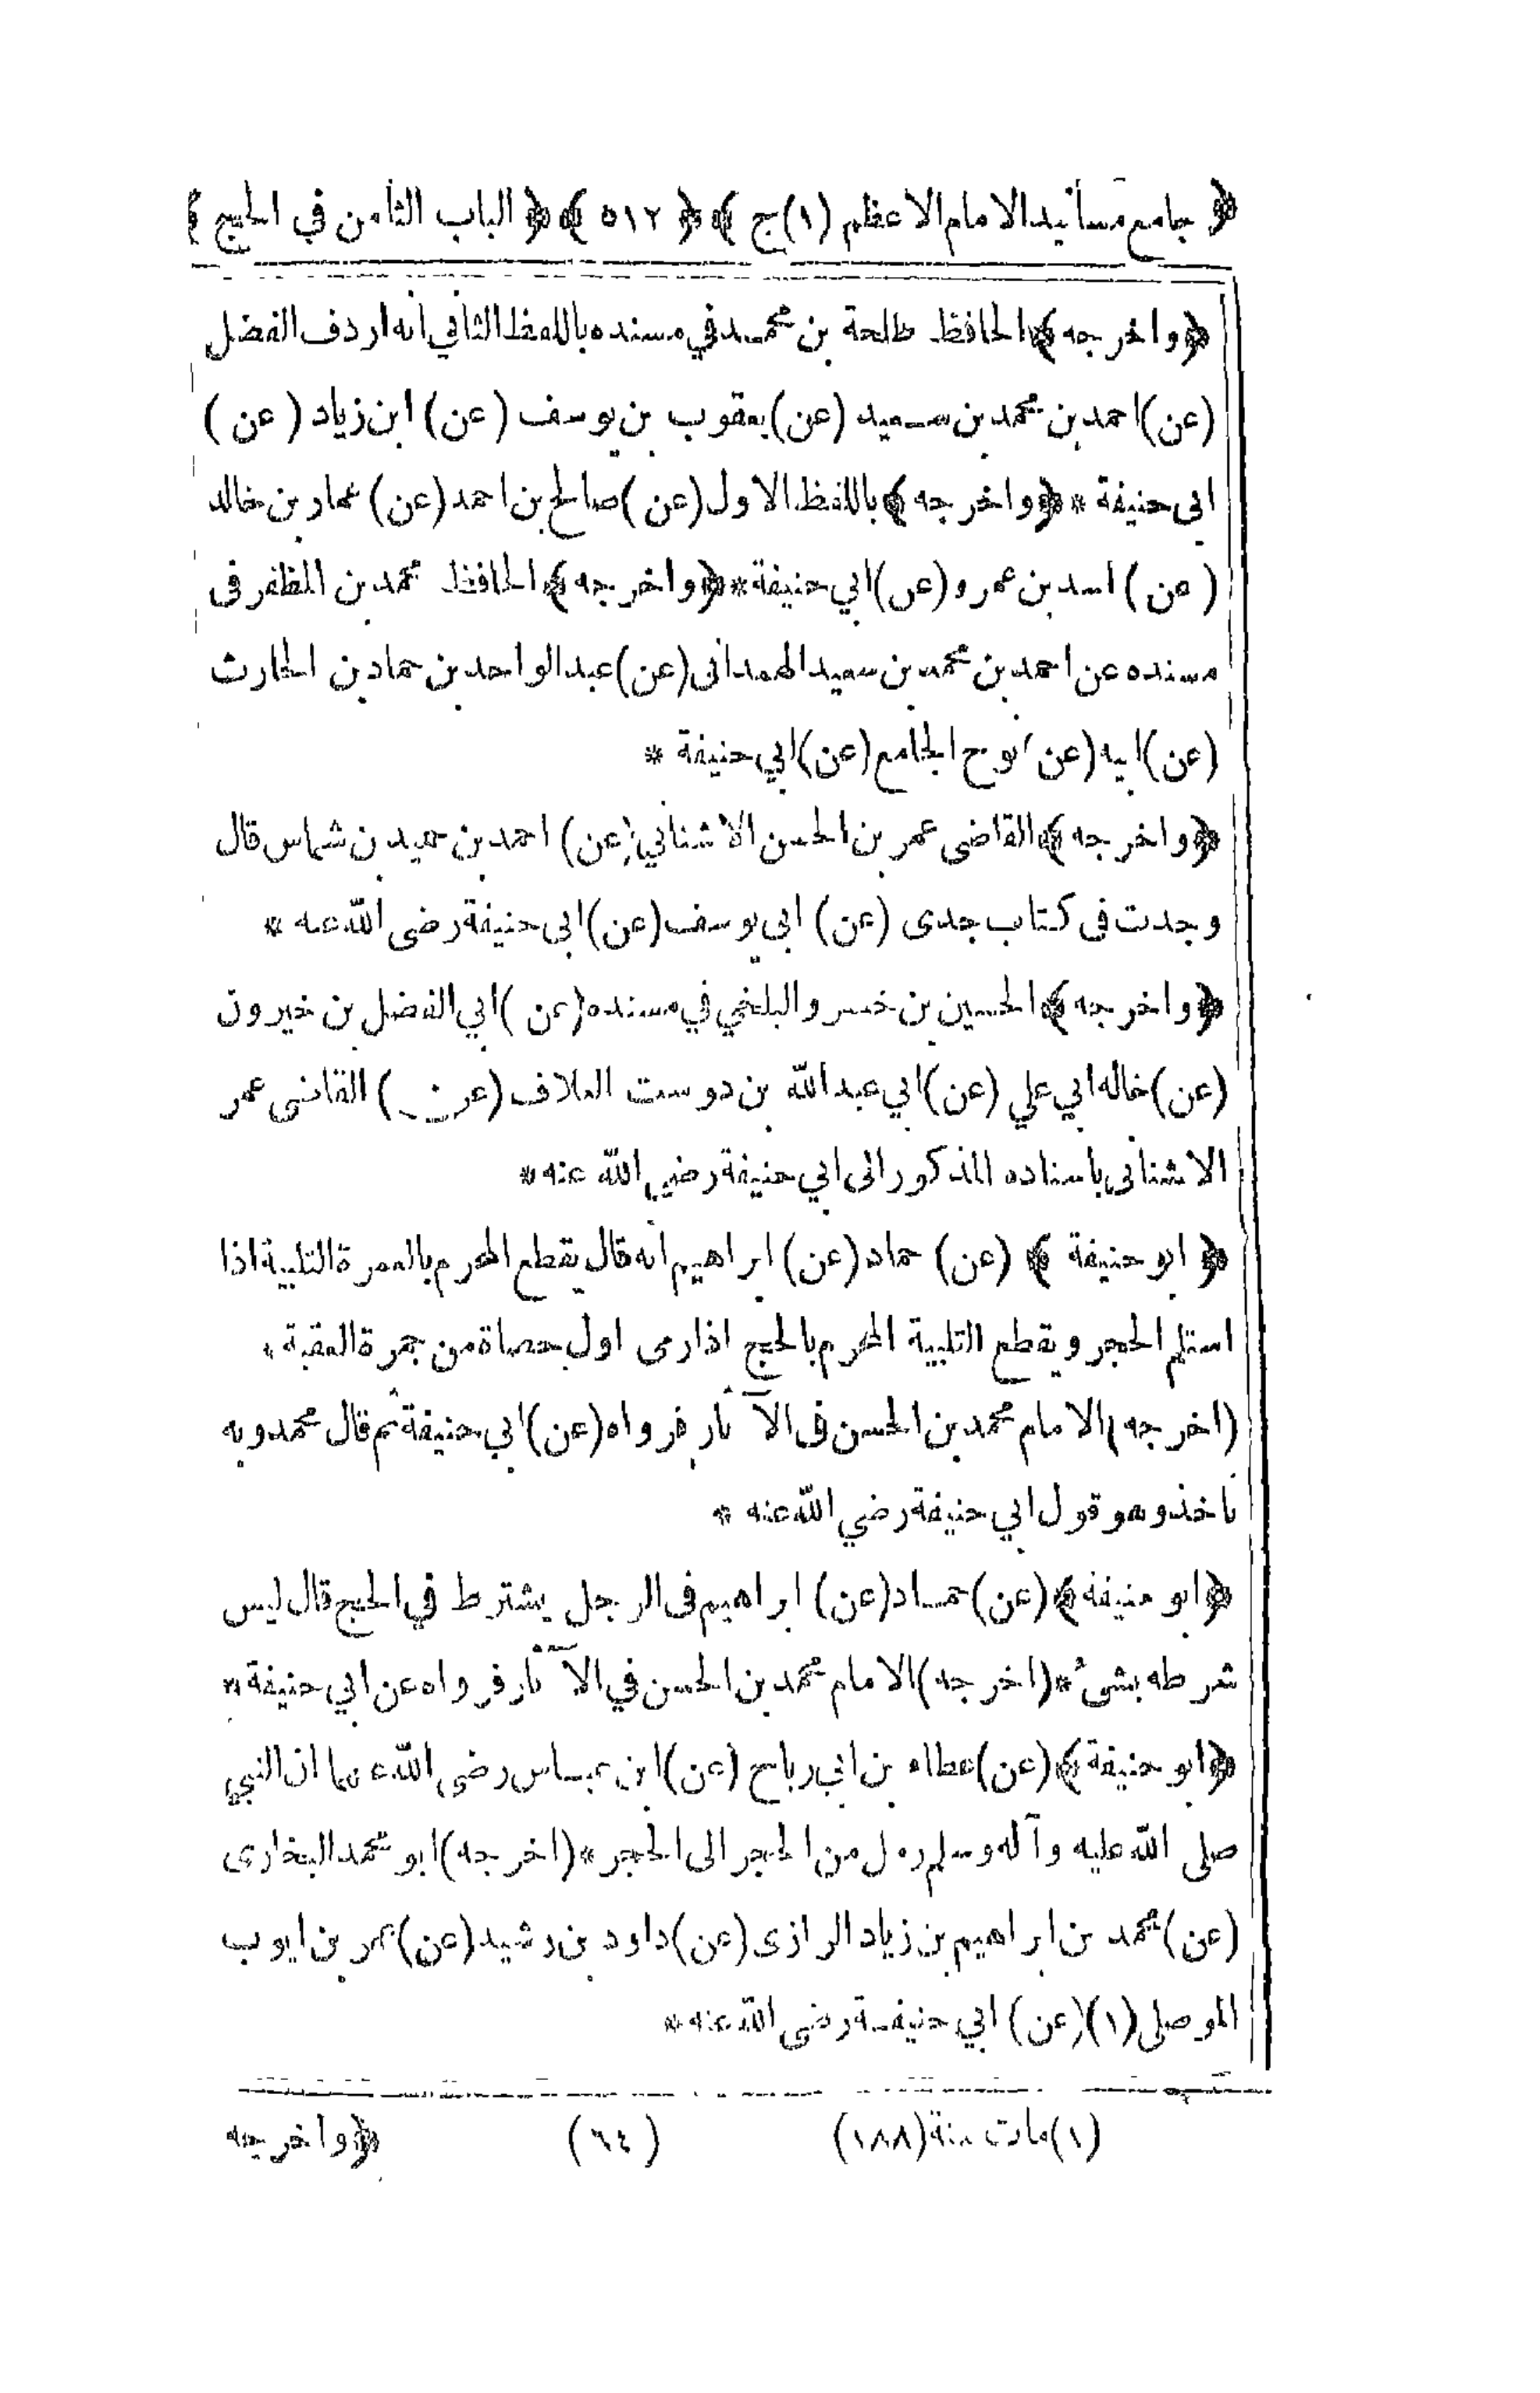 ﴿ جامع مسانيد الامام الاعظم (١) ج ﴾ ﴿ ٥١٢ ﴾ ﴿ الباب الثامن في الحج ﴾
﴿واخرجه﴾ الحافظ طلحة بن محمد في مسنده باللفظ الثاني انه اردف الفضل
(عن) احمد بن محمد بن سعيد (عن) يعقوب بن يوسف (عن) ابن زياد (عن)
ابى حنيفة * ﴿واخرجه﴾ باللفظ الاول (عن) صالح بن احمد (عن) عمار بن خالد
(عن) اسد بن عمرو (عن) ابي حنيفة * ﴿واخرجه﴾ الحافظ محمد بن المظفر فى
مسنده عن احمد بن محمد بن سعيد الهمدانى (عن) عبد الواحد بن حماد بن الحارث
(عن) ابيه (عن) نوح الجامع (عن) ابي حنيفة *
﴿واخرجه﴾ القاضى عمر بن الحسن الاشناني (عن) احمد بن حميد بن شماس قال
وجدت فى كتاب جدى (عن) ابى يوسف (عن) ابى حنيفة رضى الله عنه *
﴿واخرجه﴾ الحسين بن خسرو البلخي في مسنده (عن) ابي الفضل بن خيرون
(عن) خاله ابي علي (عن) ابي عبد الله بن دوست العلاف (عن) القاضى عمر
الاشنانى باسناده المذكور الى ابي حنيفة رضي الله عنه *
﴿ ابو حنيفة ﴾ (عن) حماد (عن) ابراهيم انه قال يقطع المحرم بالعمرة التلبية اذا
استلم الحجر ويقطع التلبية المحرم بالحج اذا رمى اول حصاة من جمرة العقبة *
(اخرجه) الامام محمد بن الحسن فى الآثار فرواه (عن) ابي حنيفة ثم قال محمد وبه
ناخذ وهو قول ابي حنيفة رضي الله عنه *
﴿ابو حنيفة﴾ (عن) حماد (عن) ابراهيم فى الرجل يشترط في الحج قال ليس
شرطه بشئ * (اخرجه) الامام محمد بن الحسن في الآثار فرواه عن ابي حنيفة *
﴿ابو حنيفة﴾ (عن) عطاء بن ابي رباح (عن) ابن عباس رضى الله عنهما ان النبي
صلى الله عليه وآله وسلم رمل من الحجر الى الحجر * (اخرجه) ابو محمد البخارى
(عن) محمد بن ابراهيم بن زياد الرازى (عن) داود بن رشيد (عن) عمر بن ايوب
الموصلى (١) (عن) ابي حنيفة رضى الله عنه *
(١) مات سنة (١٨٨) (٦٤) ﴿واخرجه